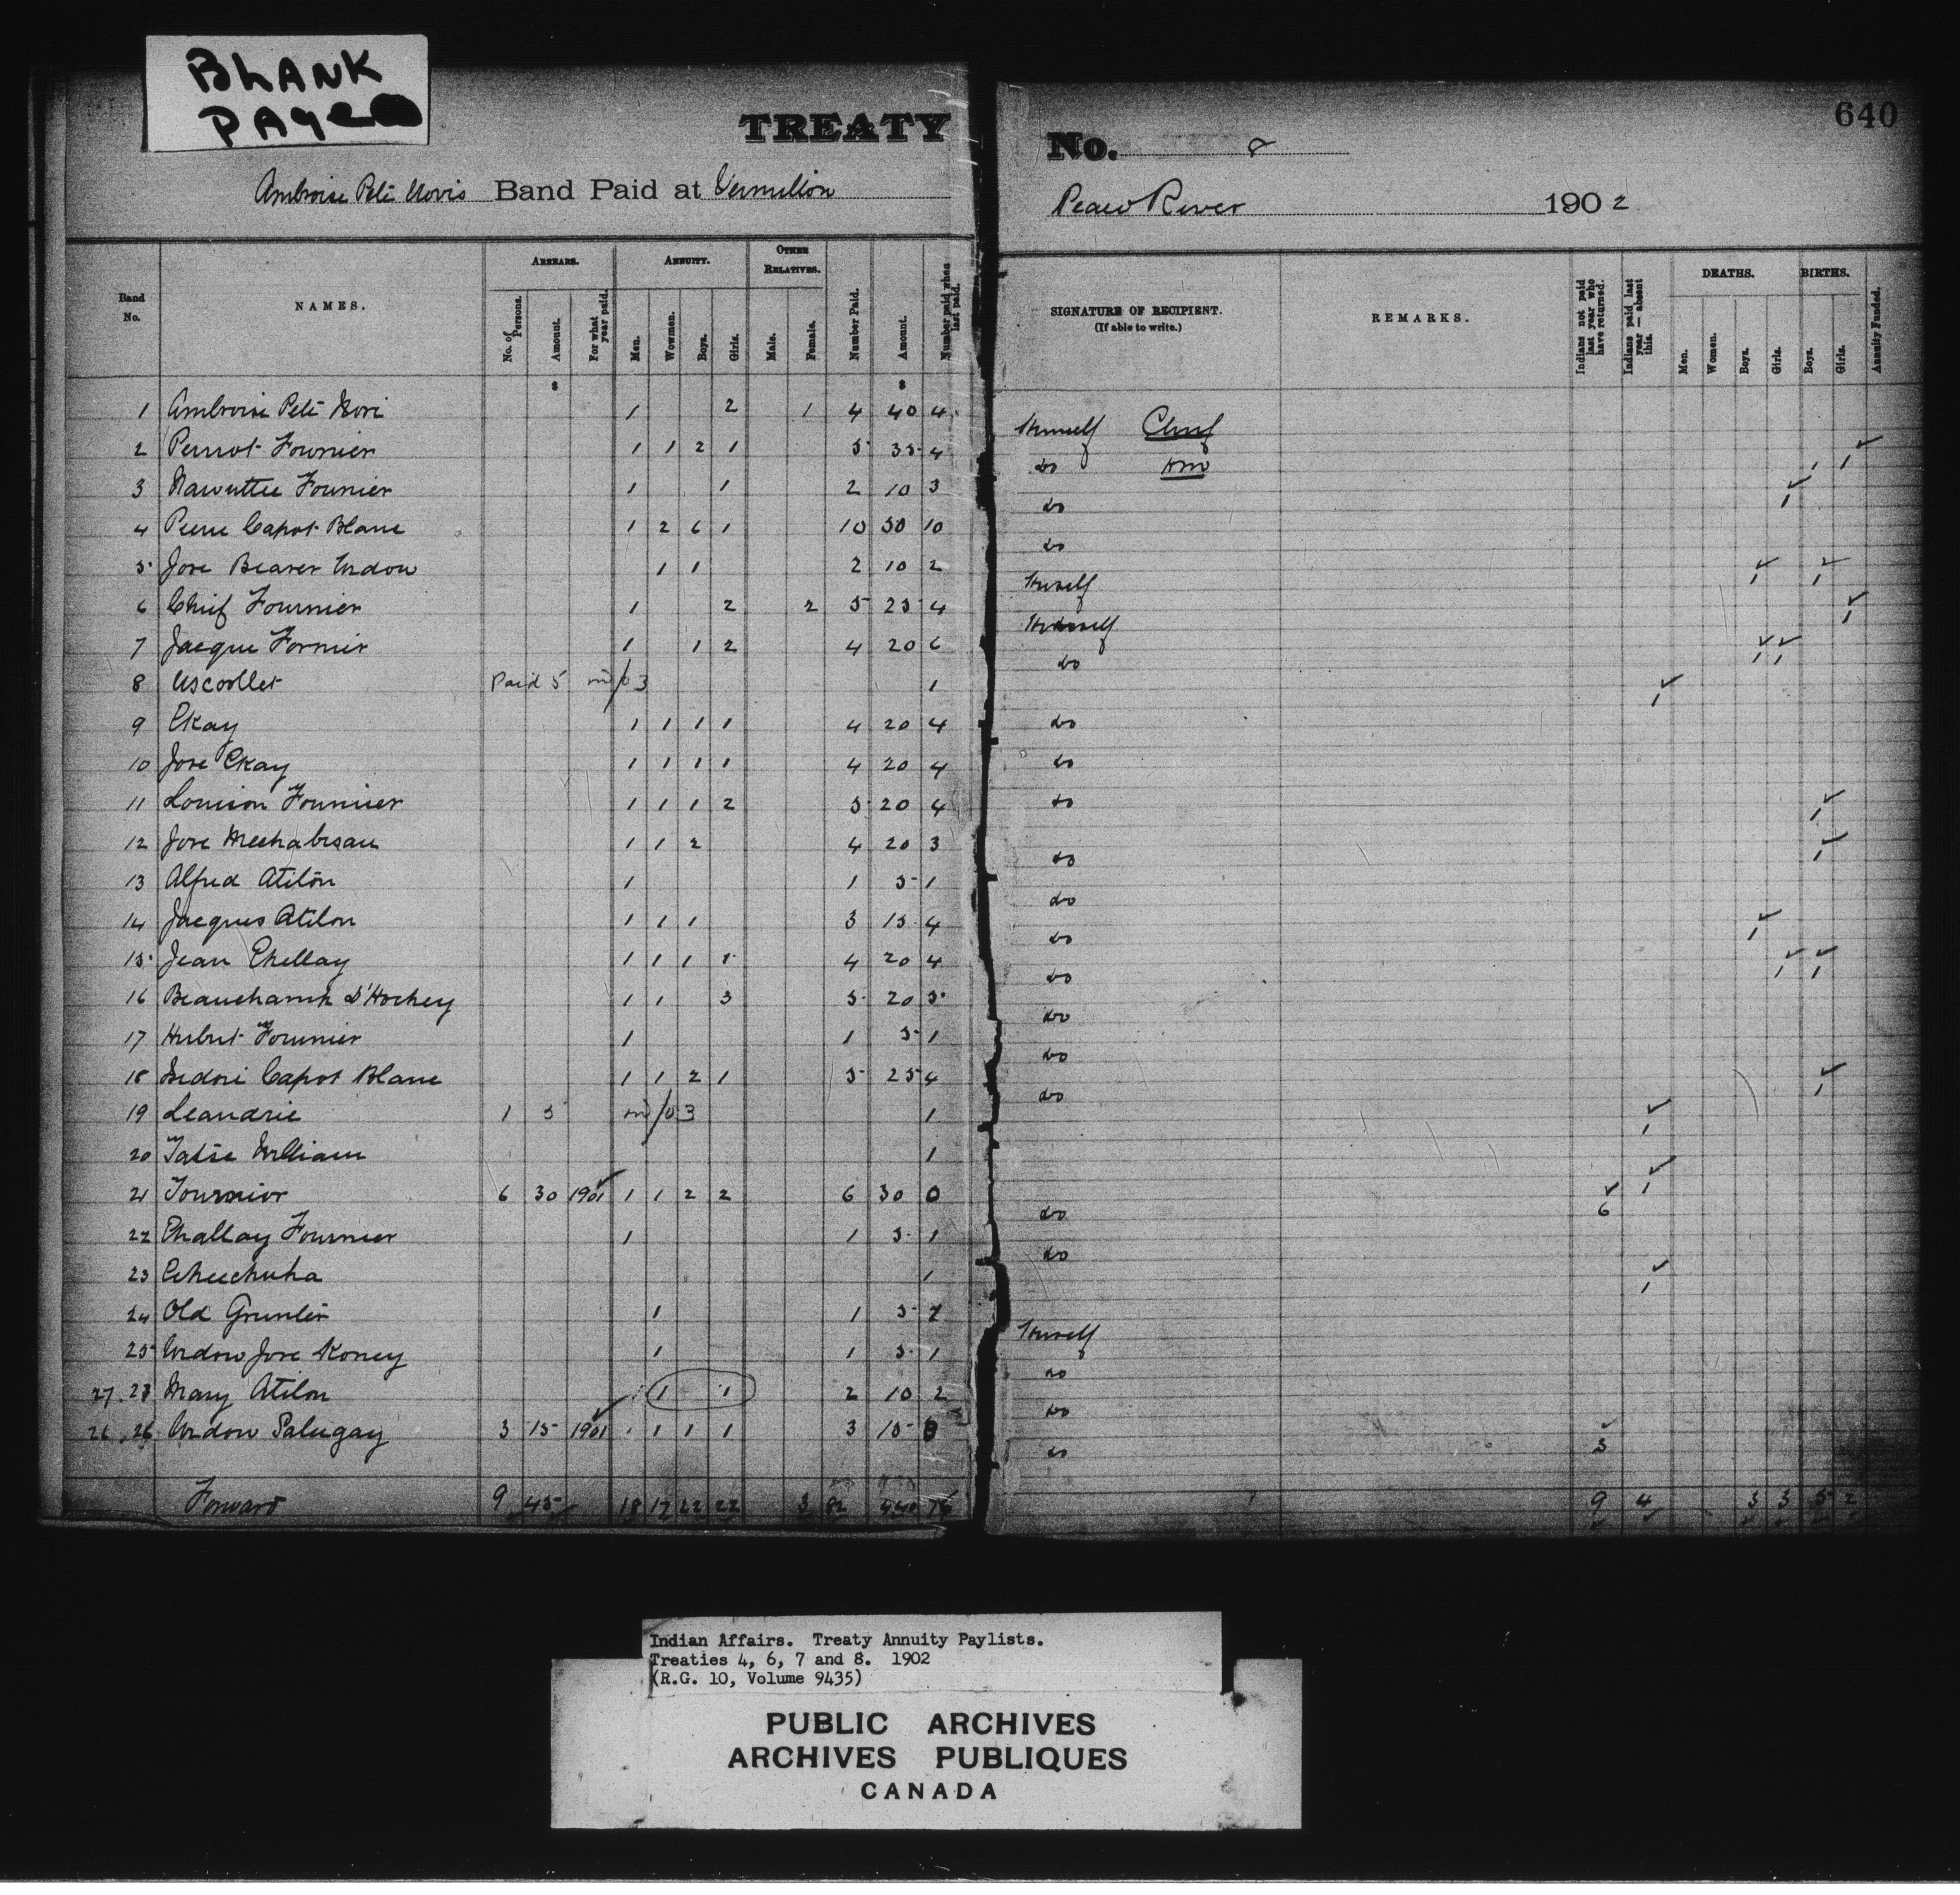 BLANK
PAGE
TREATY No. 8
640
Ambroise Peté Noris Band Paid at Vermilion Peace River 1902
Band No. NAMES. ARREARS. No. of Persons. Amount. For what year paid. ANNUITY. Men. Wowmen. Boys. Girls. OTHER RELATIVES. Male. Female. Number Paid. Amount. Number paid when last paid. SIGNATURE OF RECIPIENT. (If able to write.) REMARKS. Indians not paid last year who have returned. Indians paid last year — absent this. DEATHS. Men. Women. Boys. Girls. BIRTHS. Boys. Girls. Annuity Funded.
$ $
1 Ambroise Peté Nori 1 2 1 4 40 4 Himself Chief
2 Perriot Fournier 1 1 2 1 5 35 4 do Hm 1 1
3 Nawuttee Fournier 1 1 2 10 3 do 1
4 Pierre Capot Blanc 1 2 6 1 10 50 10 do
5 Jose Beaver Widow 1 1 2 10 2 Herself 1 1
6 Chief Fournier 1 2 2 5 25 4 Himself 1
7 Jacque Fornier 1 1 2 4 20 6 do 1 1
8 Uscollet Paid 5 in/03 1 1
9 Ekay 1 1 1 1 4 20 4 do
10 Jose Ekay 1 1 1 1 4 20 4 do
11 Louison Fournier 1 1 1 2 5 20 4 do 1
12 Jose Meehabesau 1 1 2 4 20 3 do 1
13 Alfred Atilon 1 1 5 1 do
14 Jacques Atilon 1 1 1 3 15 4 do 1
15 Jean Chellay 1 1 1 1 4 20 4 do 1 1
16 Beauchamp D'Hochey 1 1 3 5 20 5 do
17 Hubert Fournier 1 1 5 1 do
18 Isedori Capot Blanc 1 1 2 1 5 25 4 do 1
19 Leandrie 1 5 in/03 1 1
20 Tatsie William 1 1
21 Tournior 6 30 1901 1 1 2 2 6 30 0 do 6
22 Challay Fournier 1 1 5 1 do
23 Eheechuha 1 1
24 Old Gruntin 1 1 5 2 Herself
25 Widow Jose Koney 1 1 5 1 do
27. 27 Mary Atilon 1 1 2 10 2 do
26. 26 Widow Salugay 3 15 1901 1 1 1 3 15 0 do 3
Forward 9 45 18 17 22 22 3 82 440 76 9 4 3 3 5 2
Indian Affairs. Treaty Annuity Paylists.
Treaties 4, 6, 7 and 8. 1902
(R.G. 10, Volume 9435)
PUBLIC ARCHIVES
ARCHIVES PUBLIQUES
CANADA